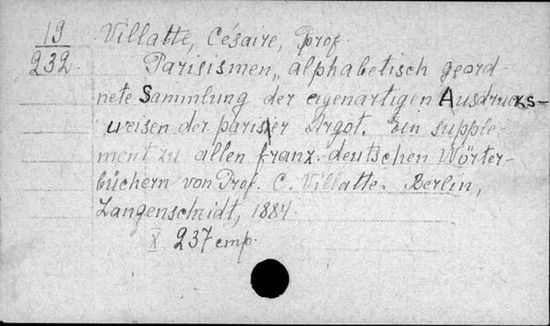 19 Villatte, Césaire, Prof.
232. Parisismen, alphabetisch geord-
nete Sammlung der eigenartigen Ausdrucks-
weisen der pariser Argot. Ein supple-
ment zu allen franz.-deutschen Wörter-
büchern von Prof. C. Villatte. Berlin,
Langenscheidt, 1884.
X, 237 стр.